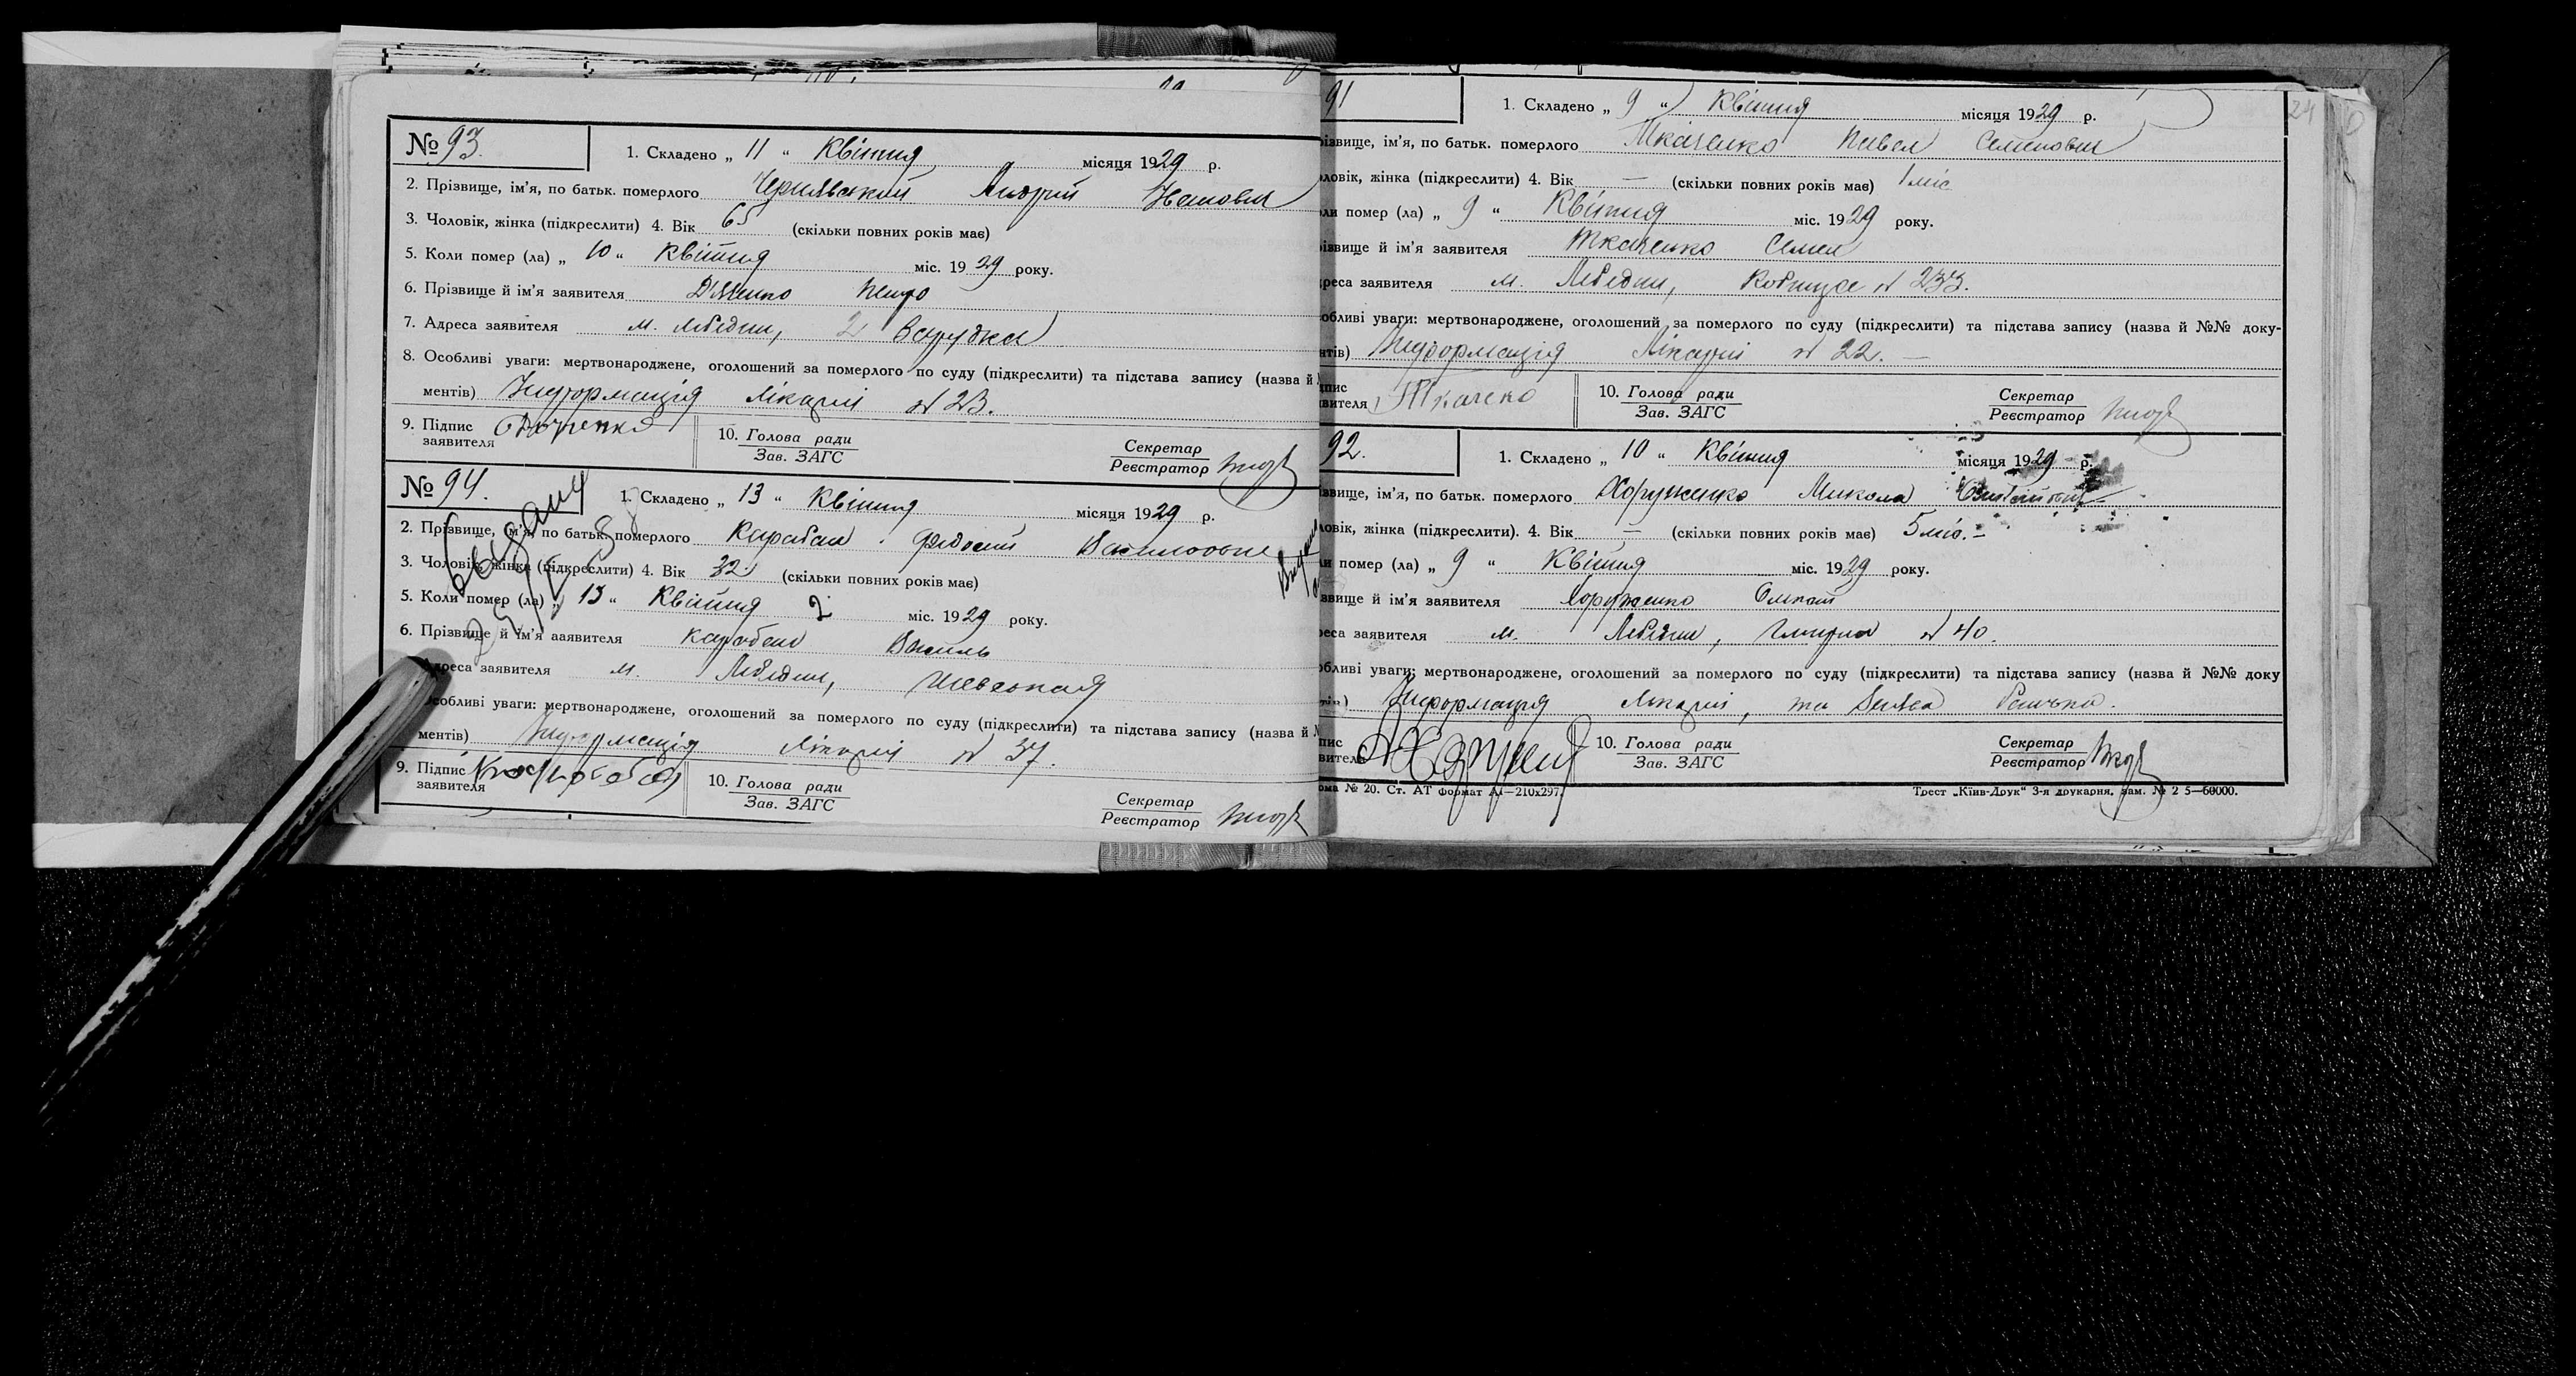 № 93.
1. Складено „ 11 “ Квітня місяця 1929 р.
2. Прізвище, ім'я, по батьк. померлого Чернявський Андрій Іванович
3. Чоловік, жінка (підкреслити) 4. Вік 65 (скільки повних років має)
5. Коли помер (ла) „ 10 “ Квітня міс. 1929 року.
6. Прізвище й ім'я заявителя Петро
7. Адреса заявителя м. Лебедин, 2
8. Особливі уваги: мертвонароджене, оголошений за померлого по суду (підкреслити) та підстава запису (назва й
ментів) Информація Лікарні № 23.
9. Підпис заявителя
10. Голова ради
Зав. ЗАГС
Секретар
Реєстратор
№ 94.
1. Складено „ 13 “ Квітня місяця 1929 р.
2. Прізвище, ім'я, по батьк. померлого Карабан Василовна
3. Чоловік, жінка (підкреслити) 4. Вік 32 (скільки повних років має)
5. Коли помер (ла) „ 13 “ Квітня міс. 1929 року.
6. Прізвище й ім'я заявителя Карабан Василь
Адреса заявителя м. Лебедин,
собливі уваги: мертвонароджене, оголошений за померлого по суду (підкреслити) та підстава запису (назва й
ментів) Информація Лікарні № 37.
9. Підпис заявителя
10. Голова ради
Зав. ЗАГС
Секретар
Реєстратор
24
91
1. Складено „ 9 “ Квітня місяця 1929 р.
ізвище, ім'я, по батьк. померлого Ткаченко Павел Семенович
ловік, жінка (підкреслити) 4. Вік — (скільки повних років має) 1 міс
ли помер (ла) „ 9 “ Квітня міс. 1929 року.
ізвище й ім'я заявителя Ткаченко Семен
реса заявителя м. Лебедин, № 233.
обливі уваги: мертвонароджене, оголошений за померлого по суду (підкреслити) та підстава запису (назва й №№ доку-
нтів) Информація Лікарні № 22. —
пис
вителя Ткачеко
10. Голова ради
Зав. ЗАГС
Секретар
Реєстратор
92.
1. Складено „ 10 “ Квітня місяця 1929 р.
звище, ім'я, по батьк. померлого Хоруженко Микола
ловік, жінка (підкреслити). 4. Вік — (скільки повних років має) 5 міс. —
ли помер (ла) „ 9 “ Квітня міс. 1929 року.
звище й ім'я заявителя Хоруженко
реса заявителя м. Лебедин, № 40.
обливі уваги: мертвонароджене, оголошений за померлого по суду (підкреслити) та підстава запису (назва й №№ доку
Информація Лікарні, та
пис
вителя
10. Голова ради
Зав. ЗАГС
Секретар
Реєстратор
ома № 20. Ст. АТ формат А4—210х297.
Трест „Київ-Друк“ 3-я друкарня, зам. № 2 5—60000.